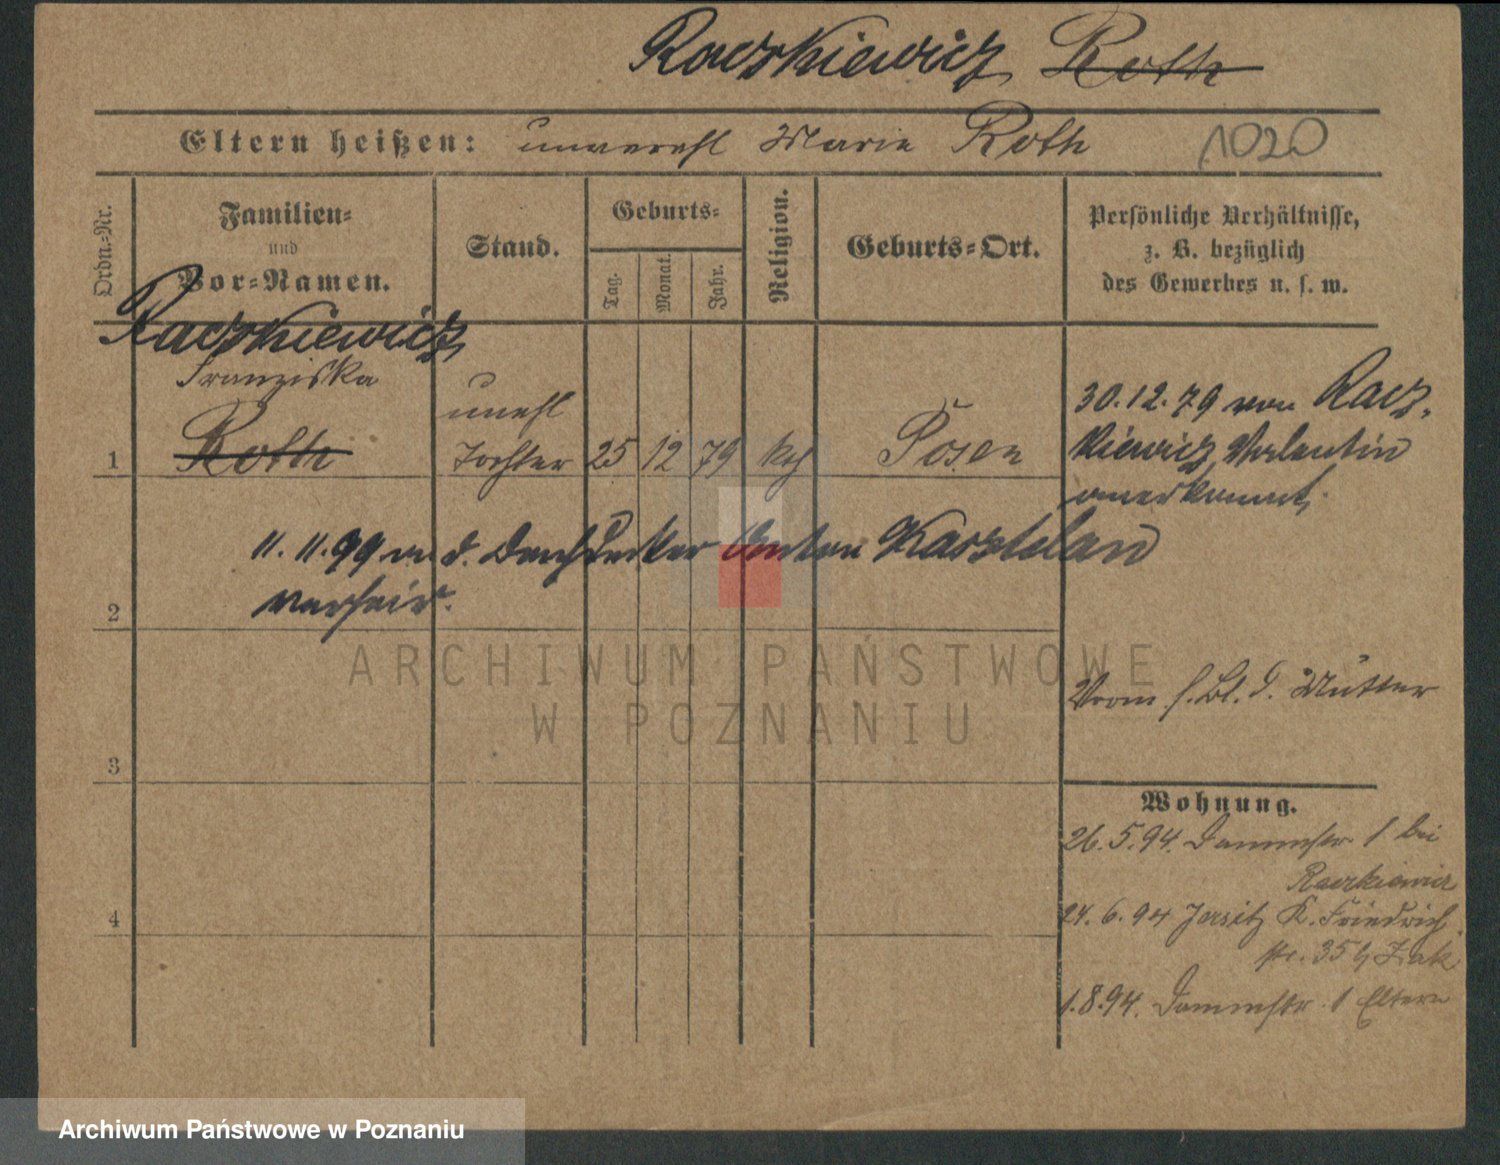 Raczkiewicz Roth
Eltern heißen: unverehl Marie Roth 1020
Ordn.=Nr.
Familien=
und
Vor=Namen.
Stand.
Geburts=
Tag.
Monat.
Jahr.
Religion.
Geburts=Ort.
Persönliche Verhältnisse,
z. B. bezüglich
des Gewerbes u. s. w.
Raczkiewicz
Franziska
Roth
unehl
Tochter
1
25 12 79 kth
Posen
30.12.79 von Racz,
kiewicz Valentin
anerkannt.
11.11.99 m d. Dachdecker Anton Kasztelan
verheir.
2
Vorm s. Bl. d. Mutter
3
4
Wohnung.
26.5.94. Dammstr. 1 bei
Raczkiewicz
24.6.94 Jersitz K. Friedrich
str. 35 b Zak
1.8.94. Dammstr. 1 Eltern
ARCHIWUM PAŃSTWOWE
W POZNANIU
Archiwum Państwowe w Poznaniu